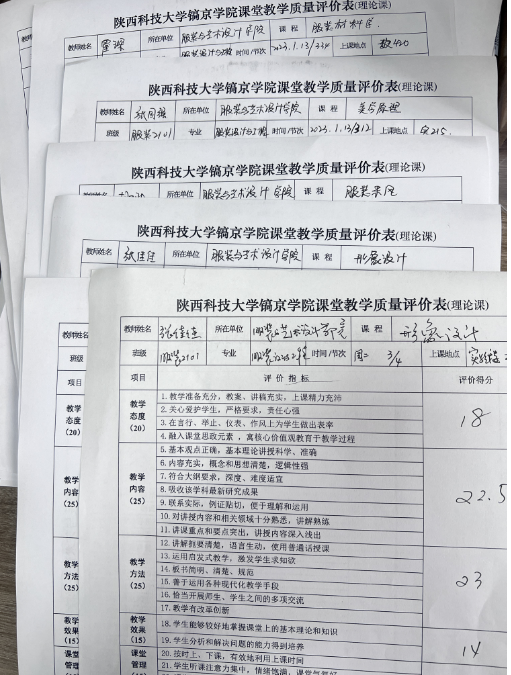 陕西科技大学镐京学院课堂教学质量评价表(理论课)
教师姓名 所在单位 服装与艺术设计学院 课程 服装材料学
时间/节次 2023.1.13/334 上课地点 教420
陕西科技大学镐京学院课堂教学质量评价表(理论课)
教师姓名 张同强 所在单位 服装与艺术设计学院 课程 美学原理
班级 服装2101 专业 服装设计与工程 时间/节次 2023.1.13/312 上课地点 215
陕西科技大学镐京学院课堂教学质量评价表(理论课)
所在单位 服装与艺术设计学院 课程
陕西科技大学镐京学院课堂教学质量评价表(理论课)
教师姓名 张佳佳 所在单位 服装与艺术设计学院 课程 形象设计
陕西科技大学镐京学院课堂教学质量评价表(理论课)
教师姓名 张佳佳 所在单位 服装与艺术设计 课程 形象设计
班级 服装2101 专业 时间/节次 周二 3/4 上课地点
项目 评价指标 评价得分
教学态度(20) 18
1.教学准备充分,教案、讲稿充实,上课精力充沛
2.关心爱护学生,严格要求,责任心强
3.在言行、举止、仪表、作风上为学生做出表率
4.融入课堂思政元素,寓核心价值观教育于教学过程
教学内容(25) 22.5
5.基本观点正确,基本理论讲授科学、准确
6.内容充实,概念和思想清楚,逻辑性强
7.符合大纲要求,深度、难度适宜
8.吸收该学科最新研究成果
9.联系实际,例证贴切,便于理解和运用
10.对讲授内容和相关领域十分熟悉,讲解熟练
11.讲课重点和要点突出,讲授内容深入浅出
教学方法(25) 23
12.讲解扼要清楚,语言生动,使用普通话授课
13.运用启发式教学,激发学生求知欲
14.板书简明、清楚、规范
15.善于运用各种现代化教学手段
16.恰当开展师生、学生之间的多项交流
17.教学有改革创新
教学效果(15) 14
18.学生能够较好地掌握课堂上的基本理论和知识
19.学生分析和解决问题的能力得到培养
课堂管理
20.按时上、下课,有效地利用上课时间
21.学生听课注意力集中,情绪饱满,课堂气氛好
班级
项目
教学态度(20)
教学内容(25)
教学方法(25)
教学效果(15)
课堂管理(15)